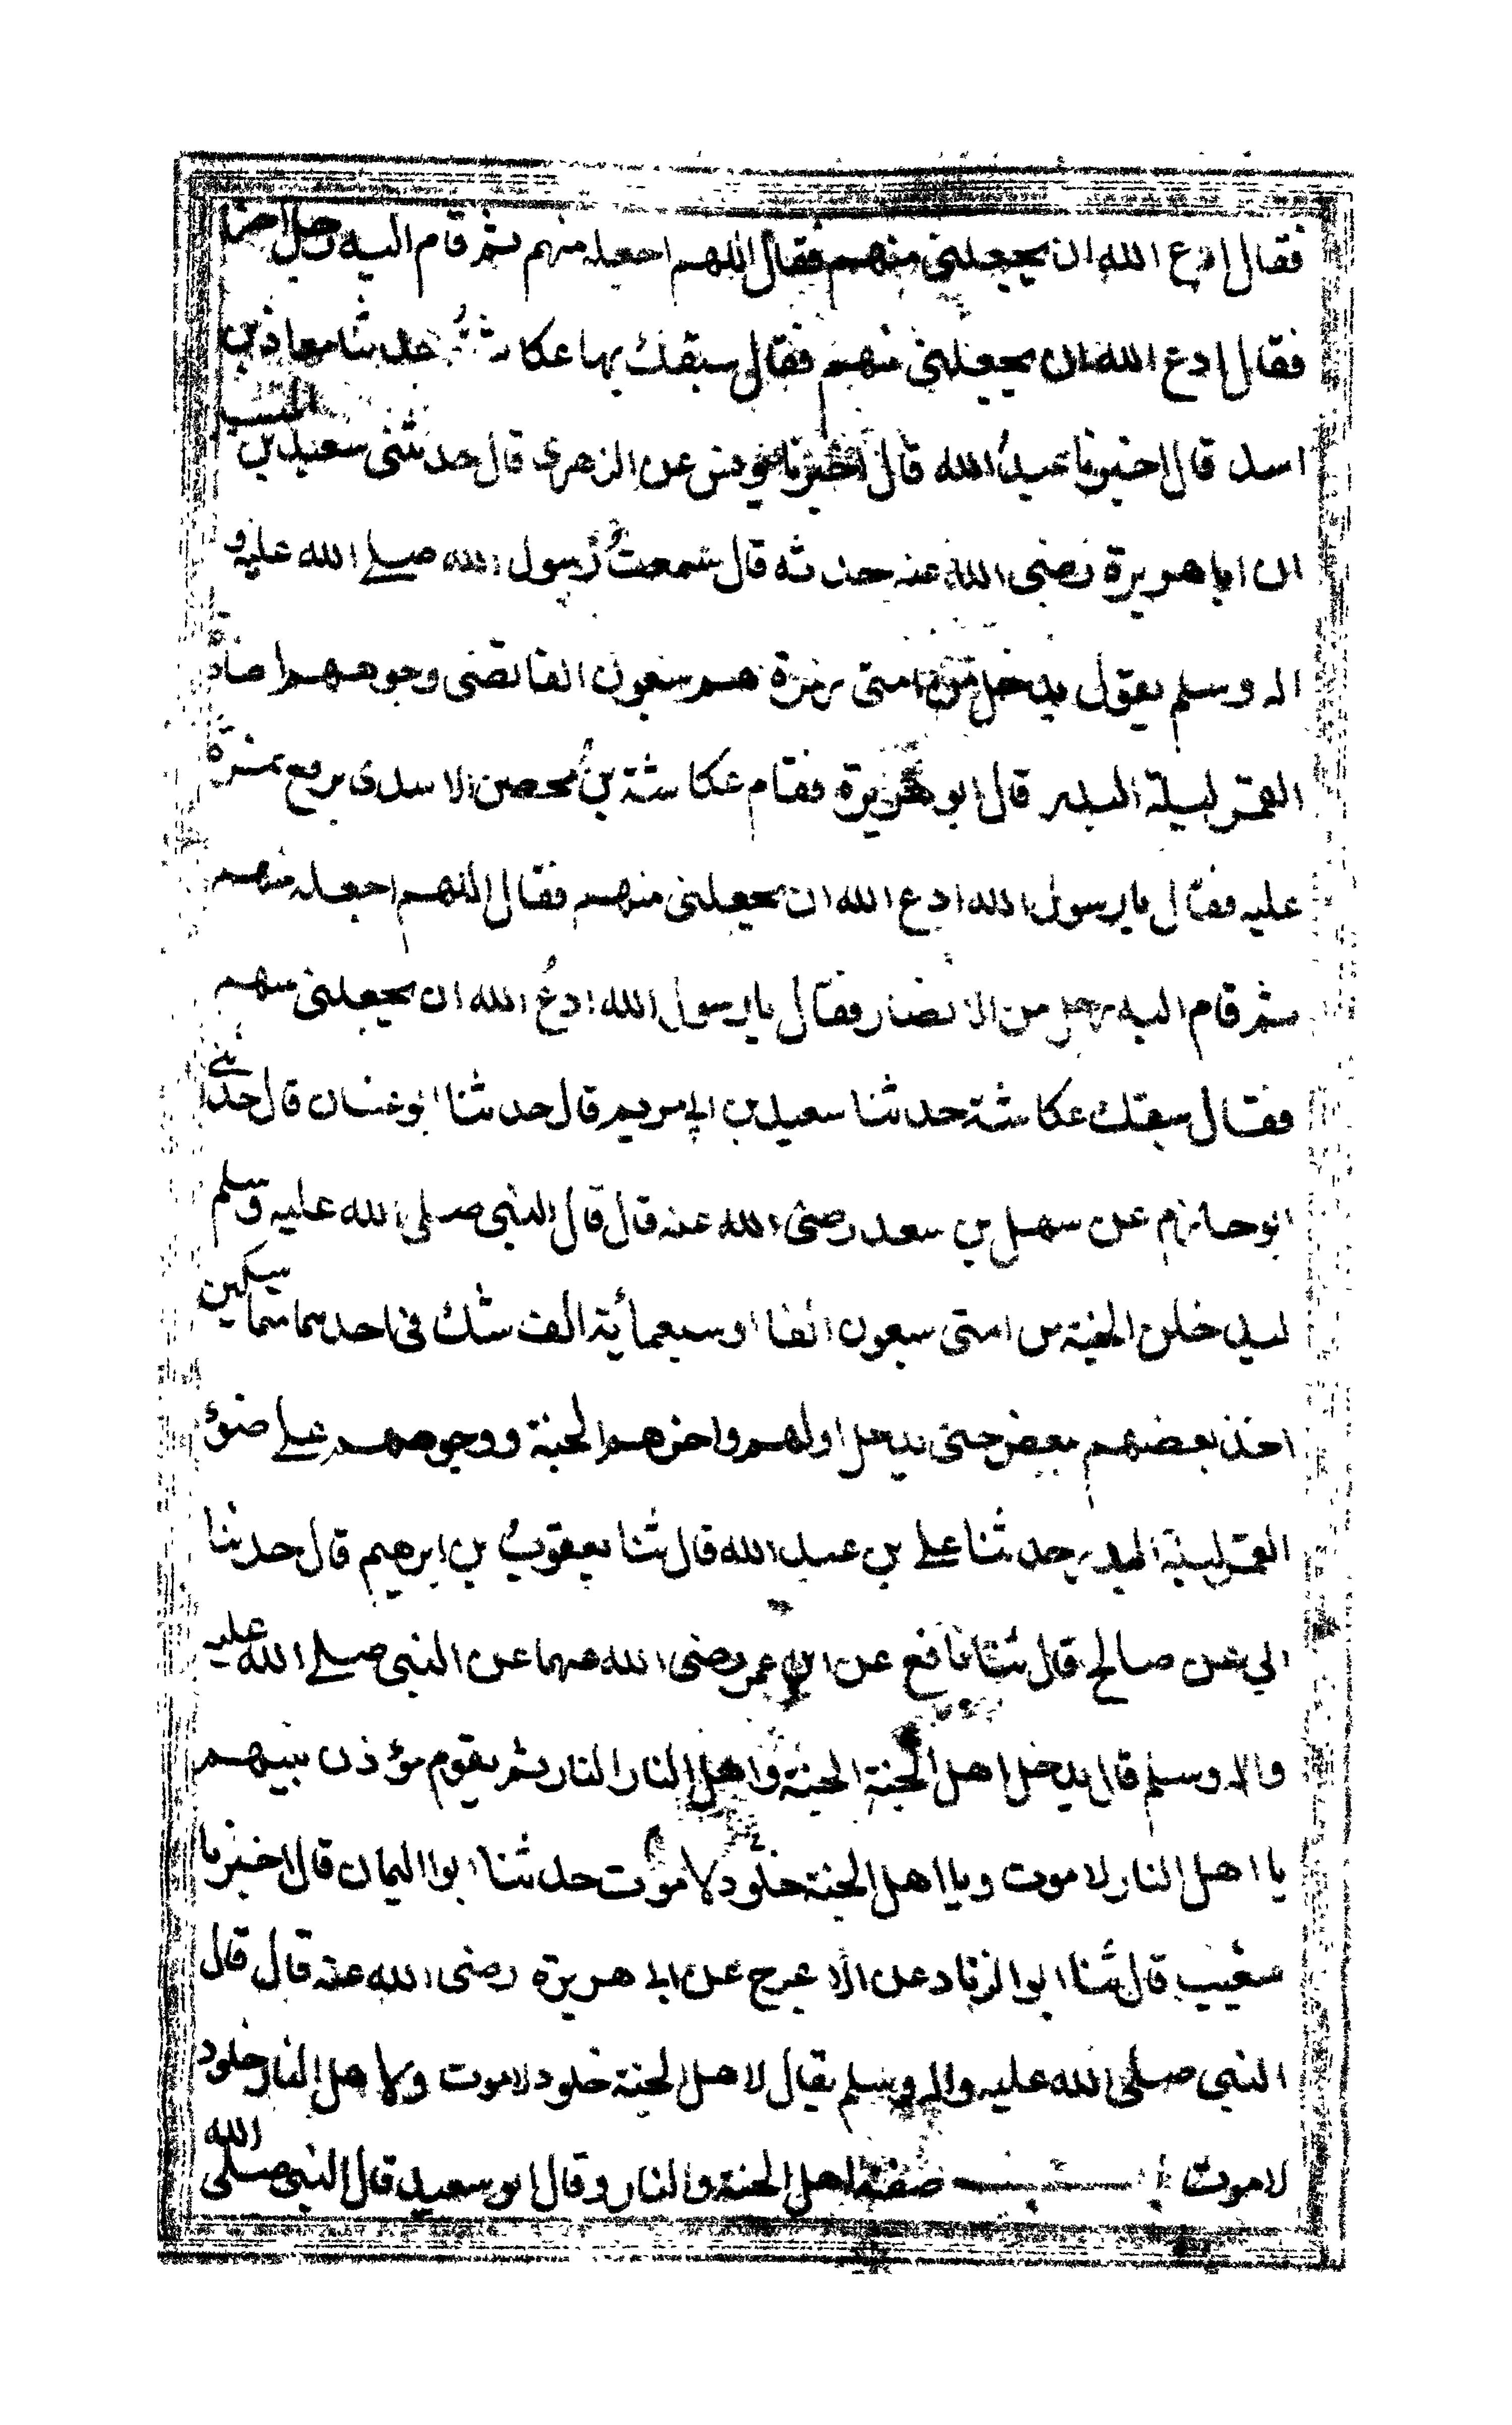 فقال ادع الله ان يجعلني منهم فقال اللهم اجعله منهم ثم قام اليه رجل اخر
فقال ادع الله ان يجعلني منهم فقال سبقك بها عكاشة حدثنا معاذ بن
اسد قال اخبرنا عبد الله قال اخبرنا يونس عن الزهرى قال حدثنى سعيد بن المسيب
ان ابا هريرة رضى الله عنه حدثه قال سمعتُ رسول الله صلے الله عليه و
اله وسلم يقول يدخل من امتى زمرة هم سبعون الفا تضى وجوههم اضاءة
القمر ليلة البدر قال ابو هريرة فقام عكاشة بنُ محصن الاسدى يرفع نمرة
عليه فقال يا رسول الله ادع الله ان يجعلنى منهم فقال اللهم اجعله منهم
ثم قام اليه رجل من الانصار فقال يا رسول الله ادعُ الله ان يجعلنى منهم
فقال سبقك عكاشة حدثنا سعيد بن ابى مريم قال حدثنا ابو غسان قال حدثنے
ابو حازم عن سهل بن سعد رضى الله عنه قال قال النبى صلى الله عليه وسلم
ليدخلن الجنة من امتى سبعون الفا او سبعمأية الف شك فى احدهما متماسكين
اخذ بعضهم ببعض حتى يدخل اولهم واخرهم الجنة ووجوههم علے ضوء
القمر ليلة البدر حدثنا علے بن عبد الله قال ثنا يعقوبُ بن ابرهيم قال حدثنا
ابى عن صالح قال ثنا نافع عن ابن عمر رضى الله عنهما عن النبى صلے الله عليه
واله وسلم قال يدخل اهل الجنة الجنة واهل النار النار ثم يقوم مؤذن بينهم
يا اهل النار لا موت ويا اهل الجنة لا موت خلود حدثنا ابو اليمان قال اخبرنا
شعيب قال ثنا ابو الزناد عن الاعرج عن ابى هريرة رضى الله عنه قال قال
النبى صلى الله عليه واله وسلم يقال لاهل الجنة خلود لا موت ولاهل النار خلود
لا موت باب صفة اهل الجنة والنار وقال ابو سعيد قال النبى صلى الله